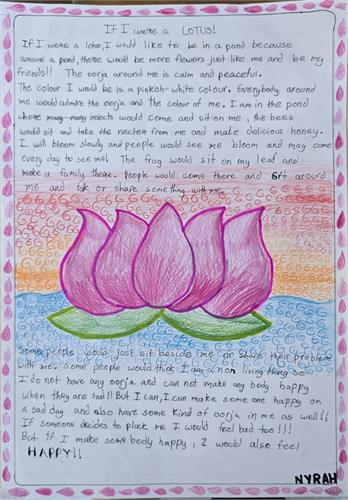 If I were a LOTUS!
If I were a lotus, I would like to be in a pond because
around a pond, there would be more flowers just like me and be my
friends!! The oorja around me is calm and peaceful.
The colour I would be is a pinkish-white colour. Everybody around
me would admire the oorja and the colour of me. I am in the pond
where many-many insects would come and sit on me, the bees
would sit and take the necter from me and make delicious honey.
I will bloom slowly and people would see me bloom and may come
every day to see me! The frog would sit on my leaf and
make a family there. People would come there and sit around
me and talk or share something with me.
Some people would just sit beside me or share their problem
with me. some people would think I am a non living thing so
I do not have any oorja and can not make any body happy
when they are sad!! But I can, I can make some one happy on
a sad day and also have some kind of oorja in me as well!!
If someone decides to pluck me I would feel bad too!!!
But if I make some body happy, I would also feel
HAPPY!!
NYRAH